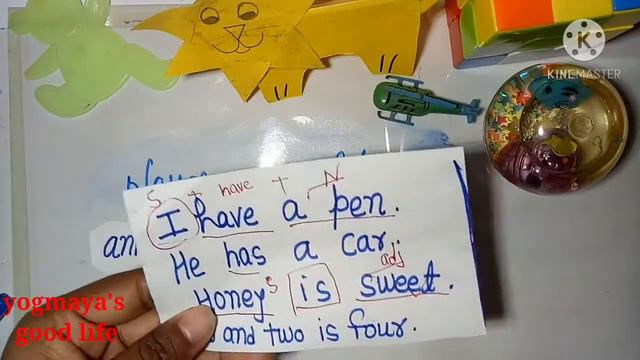 KINEMASTER
S + have + N
I have a pen.
He has a car.
adj
Honey s is sweet.
and two is four.
an
yogmaya's
good life